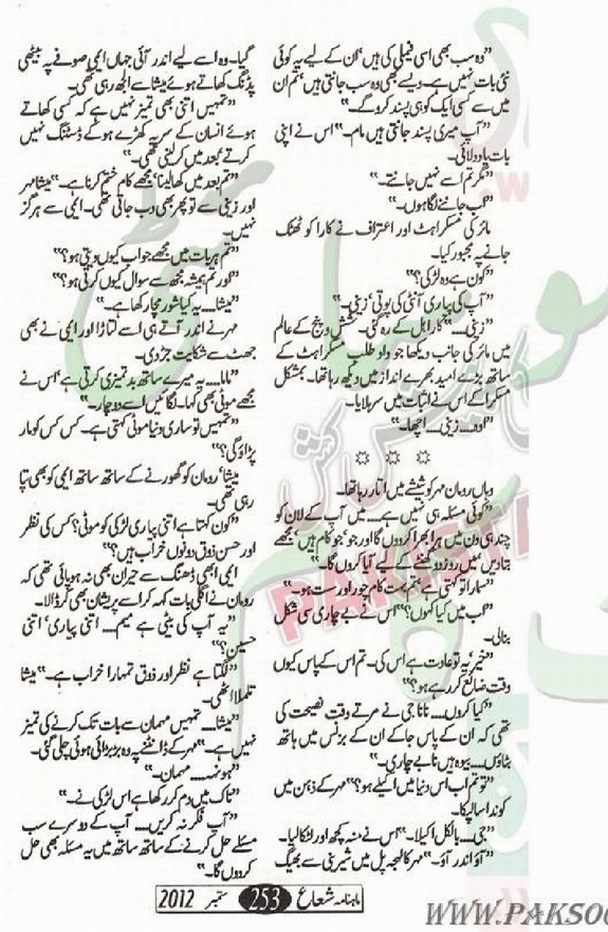 ”وہ سب بھی اسی فیملی کی ہیں‘ ان کے لیے یہ کوئی
نئی بات نہیں ہے۔ ویسے بھی وہ سب جانتی ہیں‘ تم ان
میں سے کسی ایک کو ہی پسند کرو گے۔“
”آپ میری پسند جانتی ہیں مام۔“ اس نے اپنی
بات یاد دلائی۔
”مگر تم اسے نہیں جانتے۔“
”اب جاننے لگا ہوں۔“
مائر کی مسکراہٹ اور اعتراف نے کارا کو ٹھٹک
جانے پہ مجبور کیا۔
”کون ہے وہ لڑکی؟“
”آپ کی پیاری آنٹی کی پوتی‘ زینی۔“
”زینی....“ کارا ہل کے رہ گئی۔ شش و پنج کے عالم
میں مائر کی جانب دیکھا جو داد طلب مسکراہٹ کے
ساتھ بڑے امید بھرے انداز میں دیکھ رہا تھا۔ بمشکل
مسکرا کے اس نے اثبات میں سر ہلایا۔
”اوہ.... زینی.... اچھا۔“
☼ ☼ ☼
وہاں رومان مہر کو شیشے میں اتار رہا تھا۔
”کوئی مسئلہ ہی نہیں ہے.... میں آپ کے لان کو
چند ہی دن میں ہرا بھرا کر دوں گا اور جو‘ جو کام ہیں‘ مجھے
بتا دیں میں روز دو گھنٹے کے لیے آیا کروں گا۔“
”سارا تو کہتی ہے تم بہت کام چور اور ست ہو۔“
”اب میں کیا کہوں؟“ اس نے بے چاری سی شکل
بنالی۔
”خیر‘ یہ تو عادت ہے اس کی۔ تم اس کے پاس کیوں
وقت ضائع کر رہے ہو؟“
”کیا کروں.... نانا جی نے مرتے وقت نصیحت کی
تھی کہ ان کے پاس جا کے ان کے بزنس میں ہاتھ
بٹاؤں.... بیوہ ہیں نا بے چاری۔“
”تو تم اب اس دنیا میں اکیلے ہو؟“ مہر کے ذہن میں
کوندا سا لپکا۔
”جی.... بالکل اکیلا۔“ اس نے منہ کچھ اور لٹکا لیا۔
”آؤ اندر آؤ۔“ مہر کا لہجہ پل میں شیرینی سے بھیگ
گیا۔ وہ اسے لیے اندر آئی جہاں ایمی صوفے پہ بیٹھی
پڈنگ کھاتے ہوئے میشا سے الجھ رہی تھی۔
”تمہیں اتنی بھی تمیز نہیں ہے کہ کسی کھاتے
ہوئے انسان کے سر پہ کھڑے ہو کے ڈسٹنگ نہیں
کرتے‘ بعد میں کر لینی تھی۔“
”تم بعد میں کھا لینا‘ مجھے کام ختم کرنا ہے۔“ میشا مہر
اور زینی سے تو پھر بھی دب جاتی تھی۔ ایمی سے ہرگز
نہیں۔
”تم ہر بات میں مجھے جواب کیوں دیتی ہو؟“
”اور تم ہمیشہ مجھ سے سوال کیوں کرتی ہو؟“
”میشا.... یہ کیا شور مچا رکھا ہے۔“
مہر نے اندر آتے ہی اسے لتاڑا اور ایمی نے بھی
جھٹ سے شکایت جڑ دی۔
”ماما.... یہ میرے ساتھ بدتمیزی کرتی ہے‘ اس نے
مجھے موٹی بھی کہا۔ لگائیں اسے دو چار۔“
”تمہیں تو ساری دنیا موٹی کہتی ہے۔ کس کس کو مار
پڑاؤ گی؟“
میشا‘ رومان کو گھورنے کے ساتھ ساتھ ایمی کو بھی تپا
رہی تھی۔
”کون کہتا ہے اتنی پیاری لڑکی کو موٹی؟ کس کی نظر
اور حسن ذوق دونوں خراب ہیں؟“
ایمی ابھی ڈھنگ سے حیران بھی نہ ہو پائی تھی کہ
رومان نے اگلی بات کہہ کر اسے پریشان بھی کر ڈالا۔
”یہ آپ کی بیٹی ہے میم.... اتنی پیاری‘ اتنی
حسین؟“
”لگتا ہے نظر اور ذوق تمہارا خراب ہے۔“ میشا
تلملا اٹھی۔
”میشا.... تمہیں مہمان سے بات تک کرنے کی تمیز
نہیں ہے۔“ مہر کے ڈانٹنے پہ وہ بڑبڑاتی ہوئی چلی گئی۔
”ہونہہ.... مہمان۔“
”ناک میں دم کر رکھا ہے اس لڑکی نے۔“
”آپ فکر نہ کریں.... آپ کے دوسرے سب
مسئلے حل کرنے کے ساتھ ساتھ میں یہ مسئلہ بھی حل
کر دوں گا۔“
ماہنامہ شعاع 253 ستمبر 2012
WWW.PAKSO